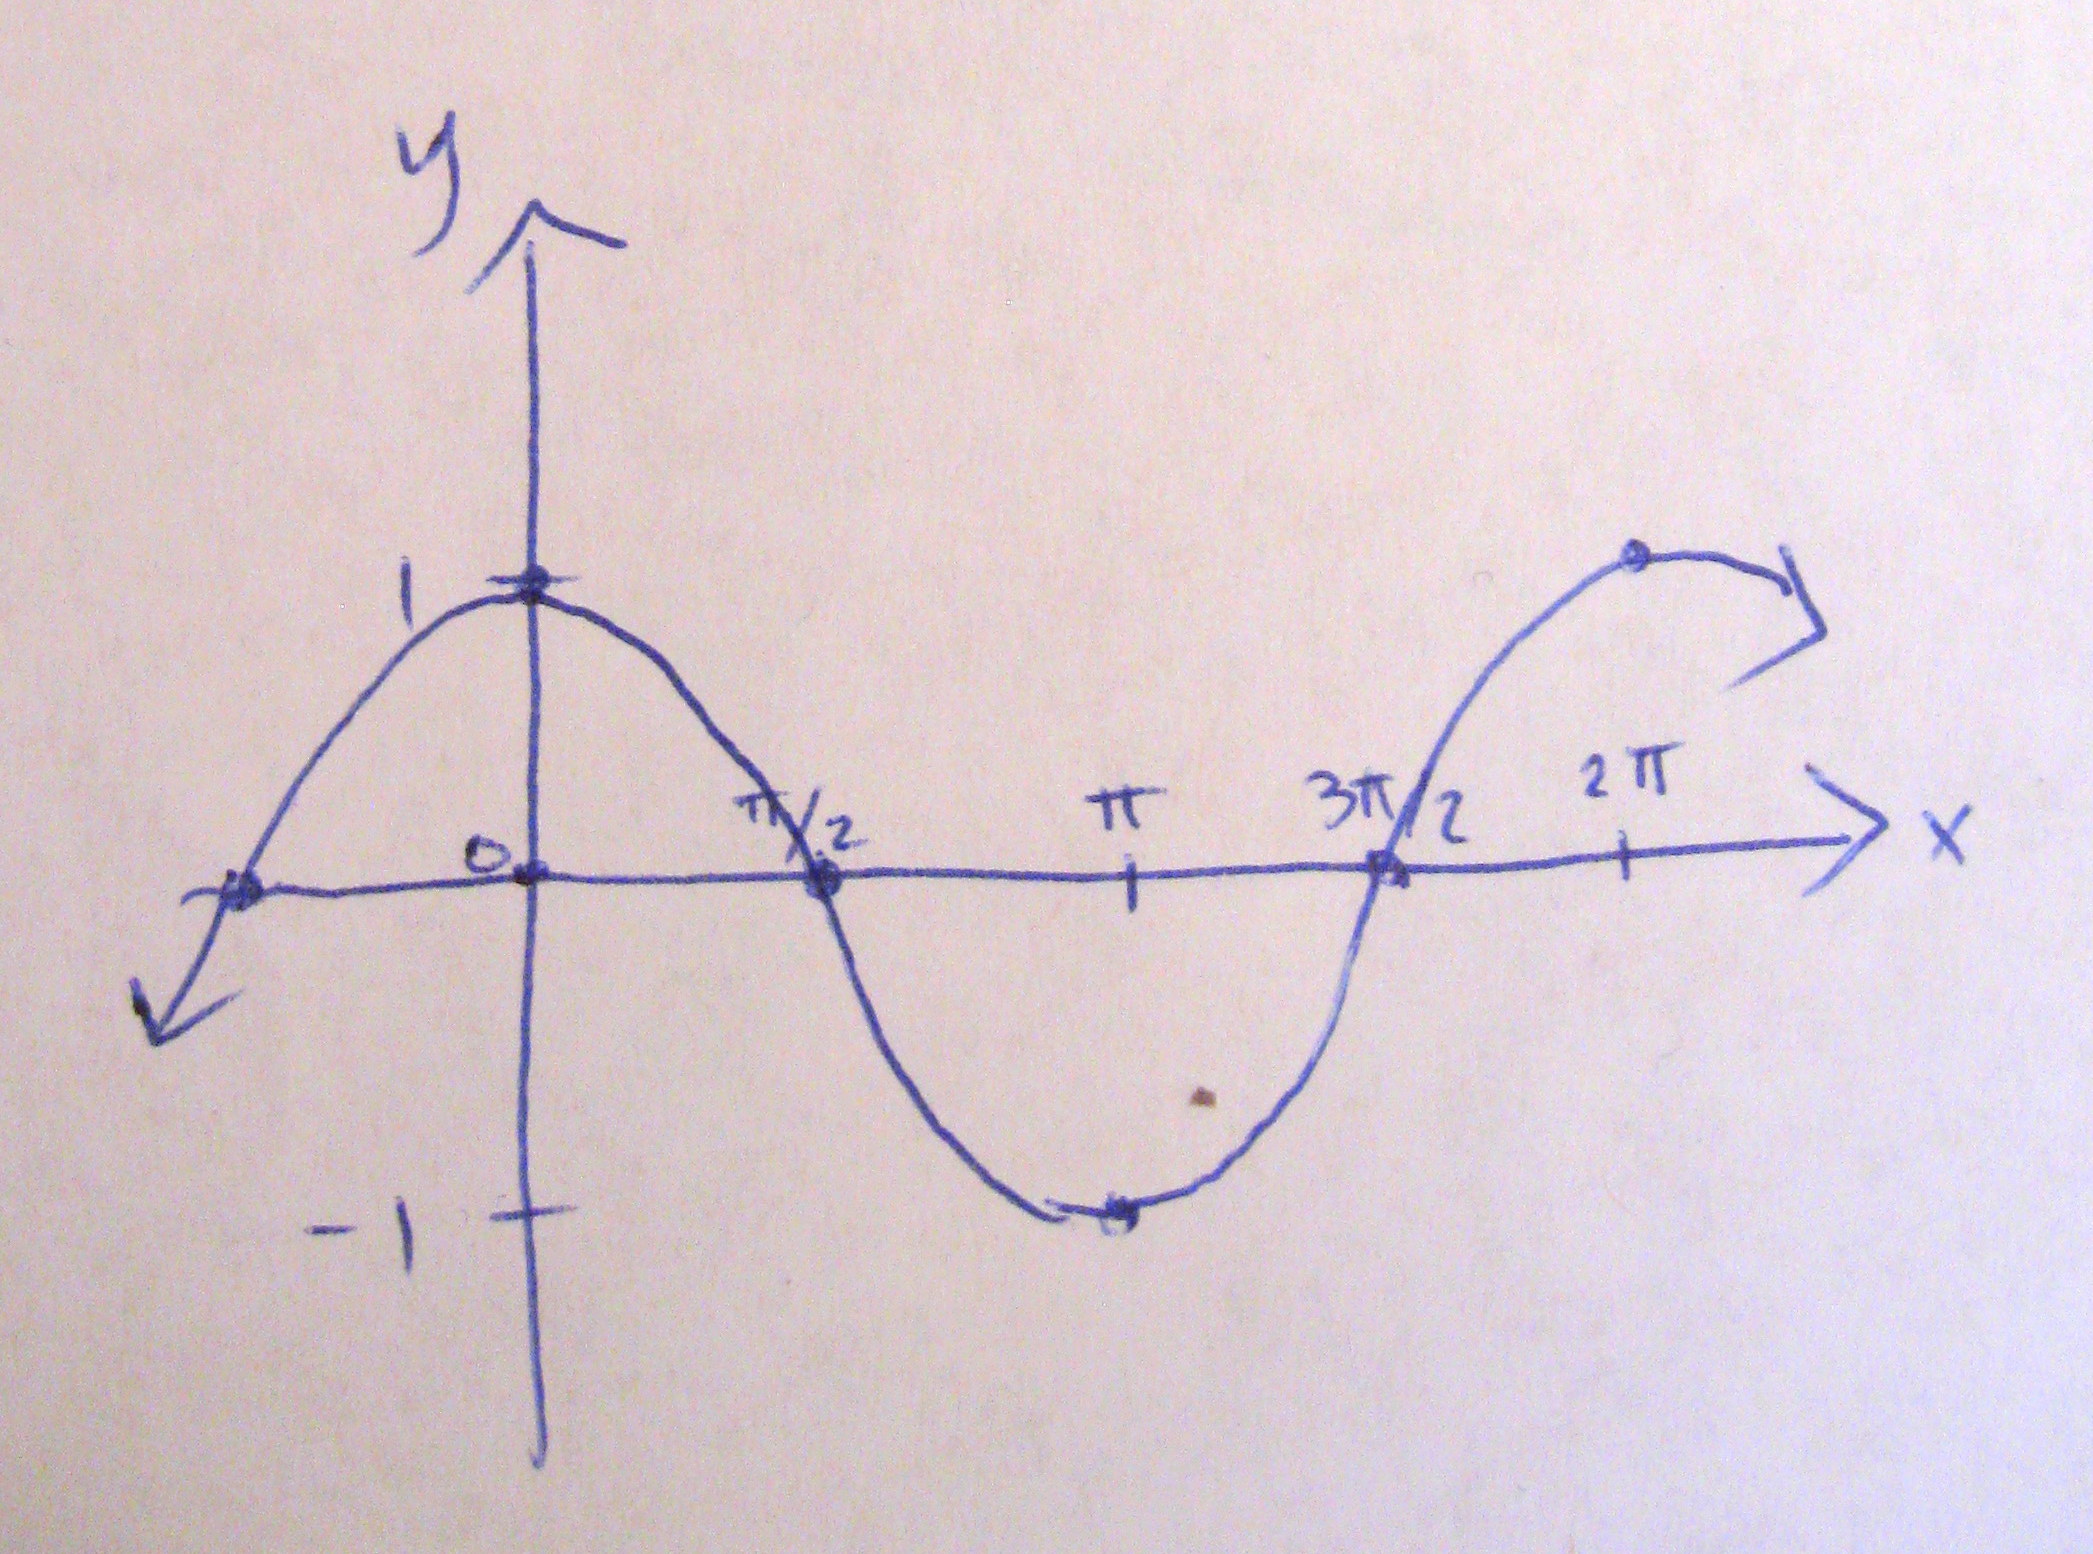 y
1
0 π/2 π 3π/2 2π x
-1